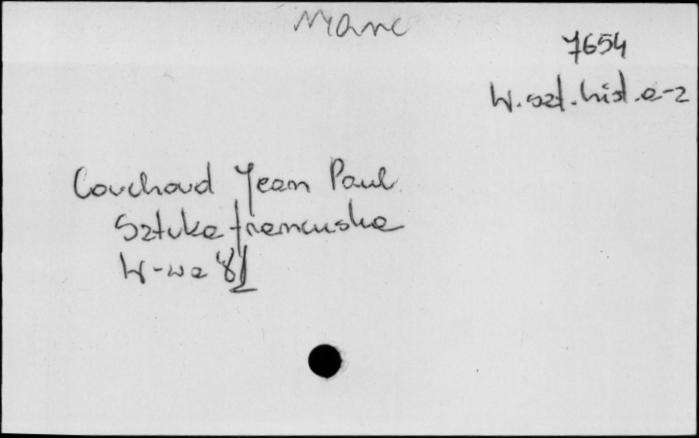 7654
W. szt. hist. a-z
Couchoud Jean Paul
Sztuka francuska
W-wa '81